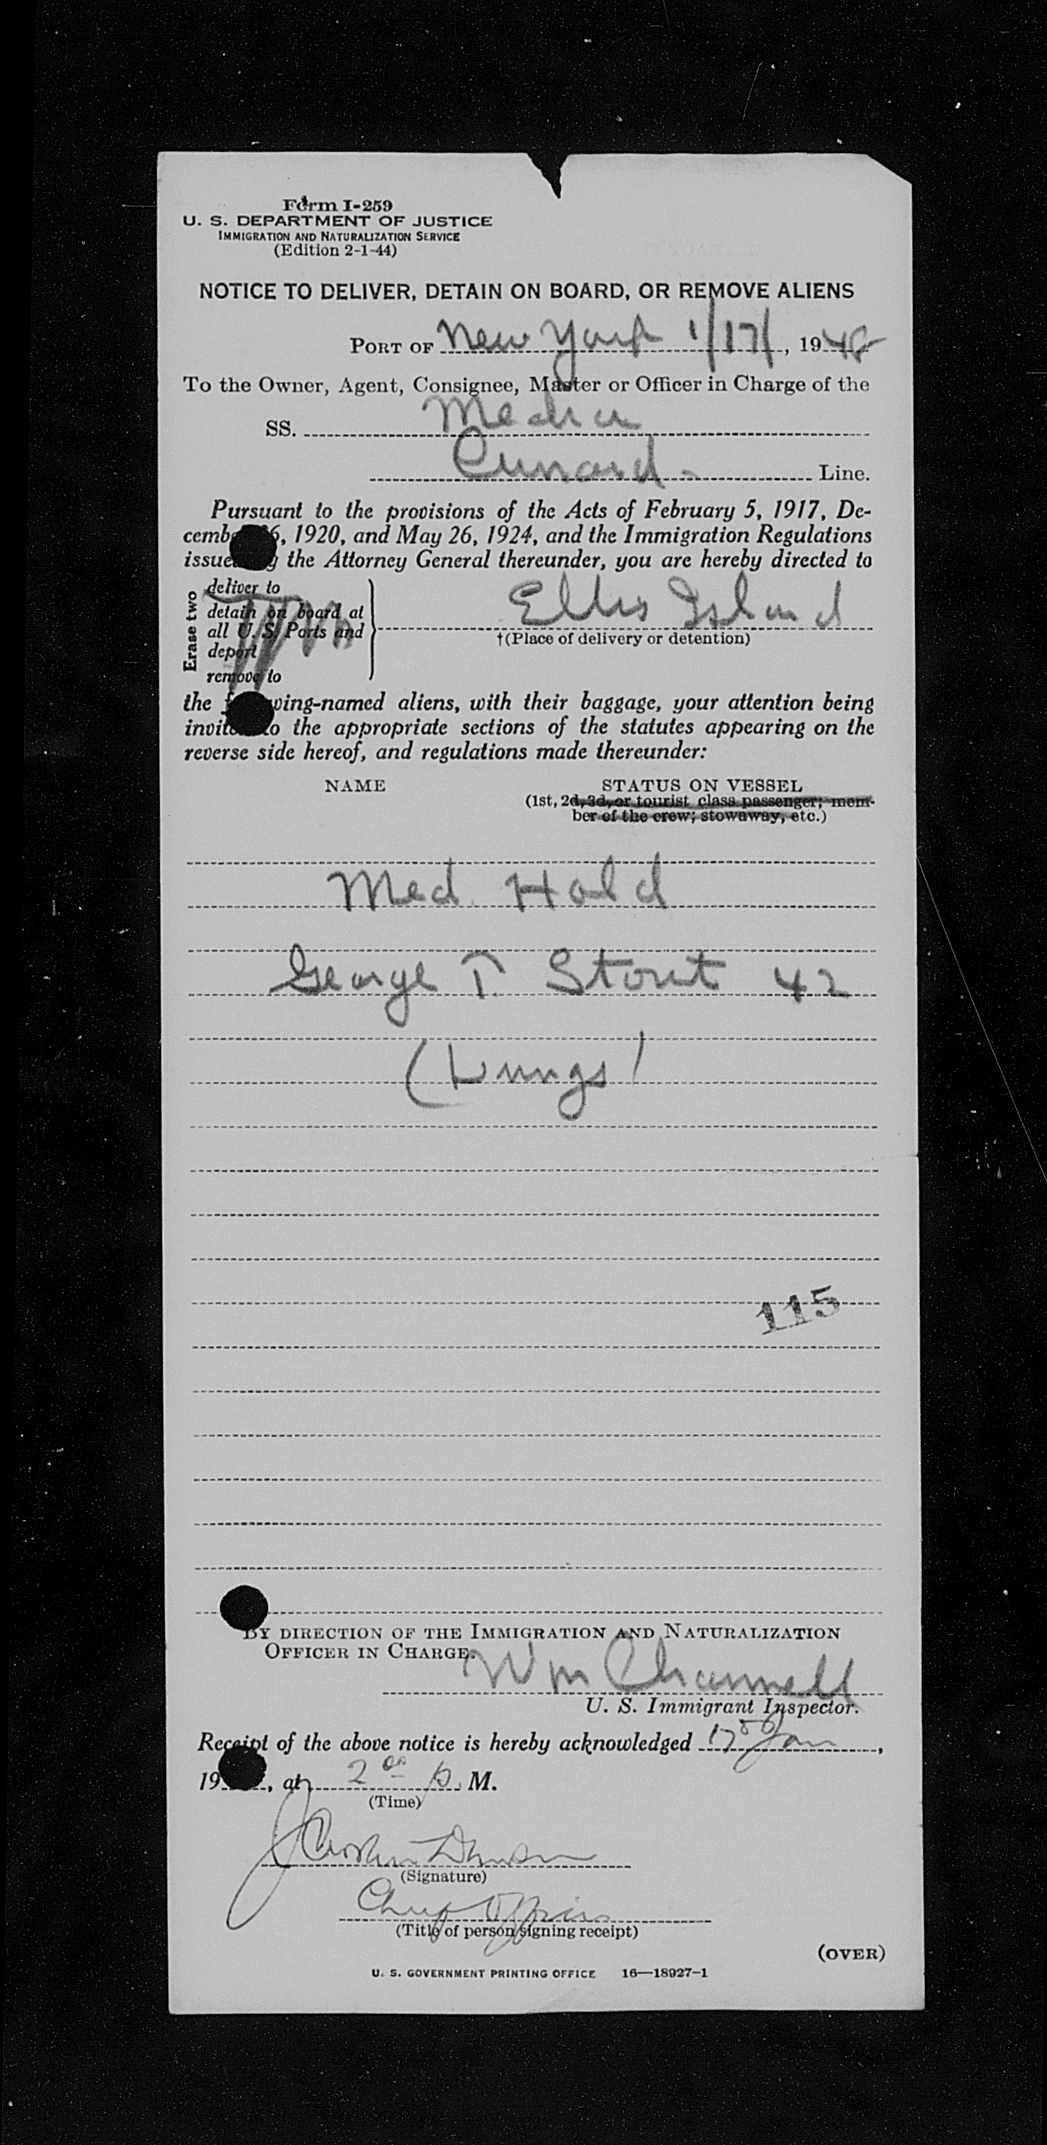 Form I-259
U. S. DEPARTMENT OF JUSTICE
IMMIGRATION AND NATURALIZATION SERVICE
(Edition 2-1-44)
NOTICE TO DELIVER, DETAIN ON BOARD, OR REMOVE ALIENS
PORT OF New York 1/17/, 1948
To the Owner, Agent, Consignee, Master or Officer in Charge of the
SS. Media
Cunard - Line.
Pursuant to the provisions of the Acts of February 5, 1917, De-
6, 1920, and May 26, 1924, and the Immigration Regulations
the Attorney General thereunder, you are hereby directed to
Erase two
deliver to
detain on board at
all U. S. Ports and
deport
remove to
Ellis Island
†(Place of delivery or detention)
the following-named aliens, with their baggage, your attention being
to the appropriate sections of the statutes appearing on the
reverse side hereof, and regulations made thereunder:
NAME STATUS ON VESSEL
(1st, 2d, 3d, or tourist class passenger; mem-
ber of the crew; stowaway, etc.)
Med. Hold
George T. Stout 42
(Lungs)
115
BY DIRECTION OF THE IMMIGRATION AND NATURALIZATION
OFFICER IN CHARGE.
Wm Channell
U. S. Immigrant Inspector.
Receipt of the above notice is hereby acknowledged 17 Jan,
19, at 2 00 p. M.
(Time)
(Signature)
Chief Officer
(Title of person signing receipt)
(OVER)
U. S. GOVERNMENT PRINTING OFFICE 16—18927-1